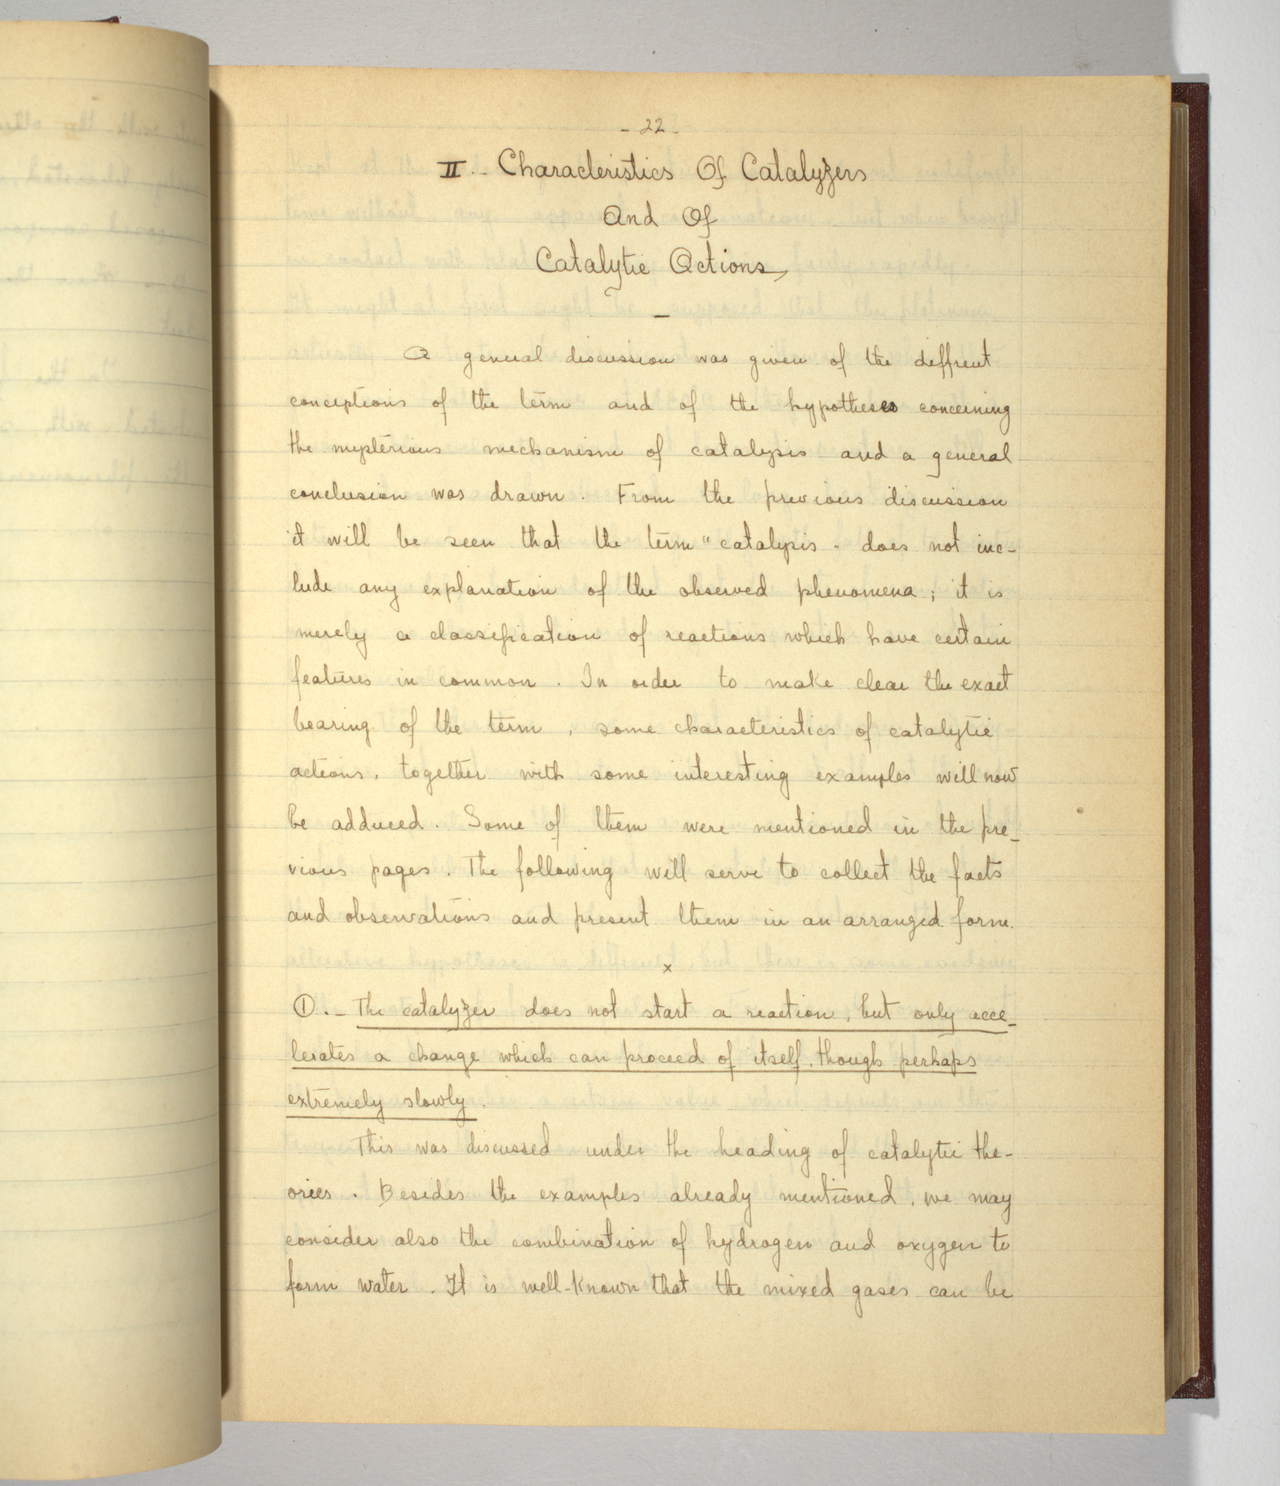 - 22 -
II. - Characteristics Of Catalyzers
And Of
Catalytic Actions
A general discussion was given of the diffrent
conceptions of the term and of the hypotheses concerning
the mysterious mechanism of catalysis and a general
conclusion was drawn. From the previous discussion
it will be seen that the term "catalysis" does not inc-
lude any explanation of the observed phenomena; it is
merely a classification of reactions which have certain
features in common. In order to make clear the exact
bearing of the term, some characteristics of catalytic
actions, together with some interesting examples will now
be adduced. Some of them were mentioned in the pre-
vious pages. The following will serve to collect the facts
and observations and present them in an arranged form.
x
①. - The catalyzer does not start a reaction, but only acce-
lerates a change which can proceed of itself, though perhaps
extremely slowly.
This was discussed under the heading of catalytic the-
ories. Besides the examples already mentioned, we may
consider also the combination of hydrogen and oxygen to
form water. It is well-known that the mixed gases can be